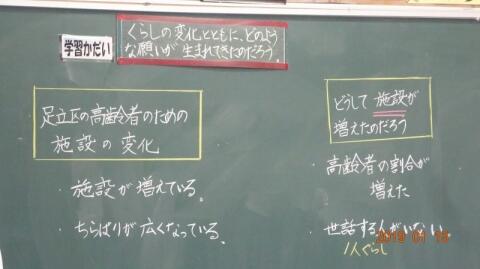 学習かだい
くらしの変化とともに、どのよう
な願いが生まれてきたのだろう。
足立区の高齢者のための
施設の変化
・施設が増えている。
・ちらばりが広くなっている。
どうして施設が
増えたのだろう
・高齢者の割合が
増えた
・世話する人がいない。
1人ぐらし